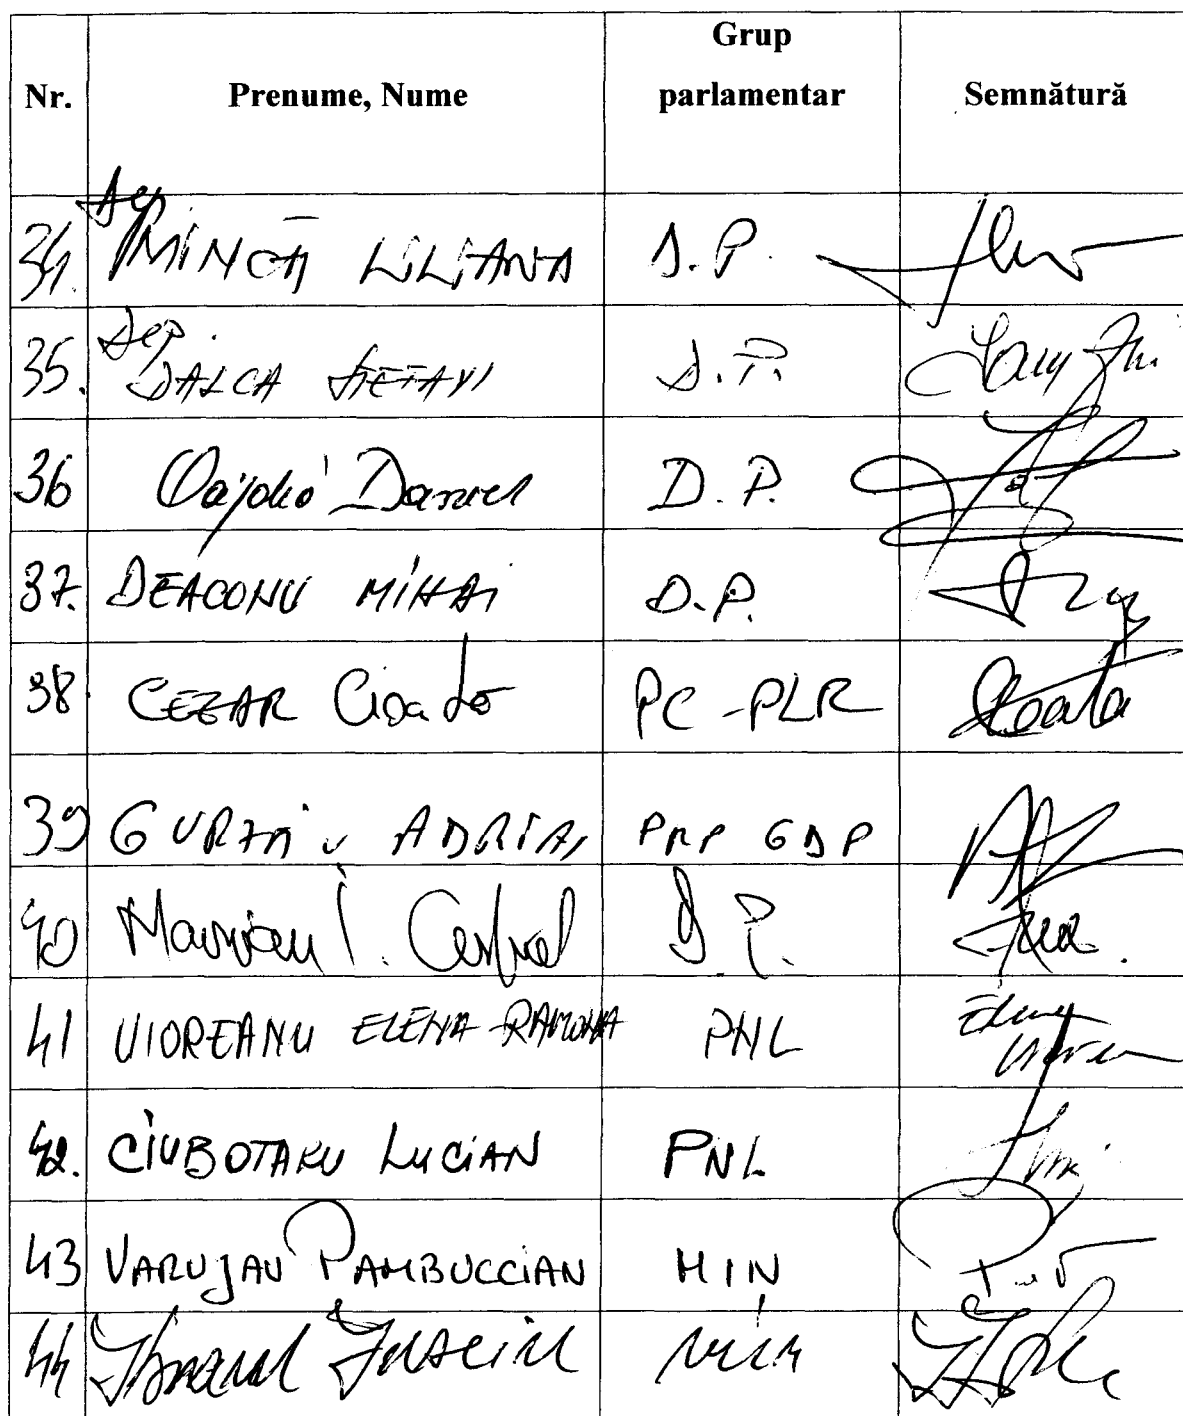 Nr. Prenume, Nume Grup parlamentar Semnătură
34. Dep MINCĂ LILIANA D.P.
35. Dep. DALCA D.P.
36 Daniel D.P.
37. DEACONU MIHAI D.P.
38 CEZAR Cioată PC-PLR
39 GURZĂU ADRIAN PRP GDP
40 D P.
41 VIOREANU ELENA-RAMONA PNL
42. CIUBOTARU LUCIAN PNL
43 VARUJAN PAMBUCCIAN MIN
44 MIN